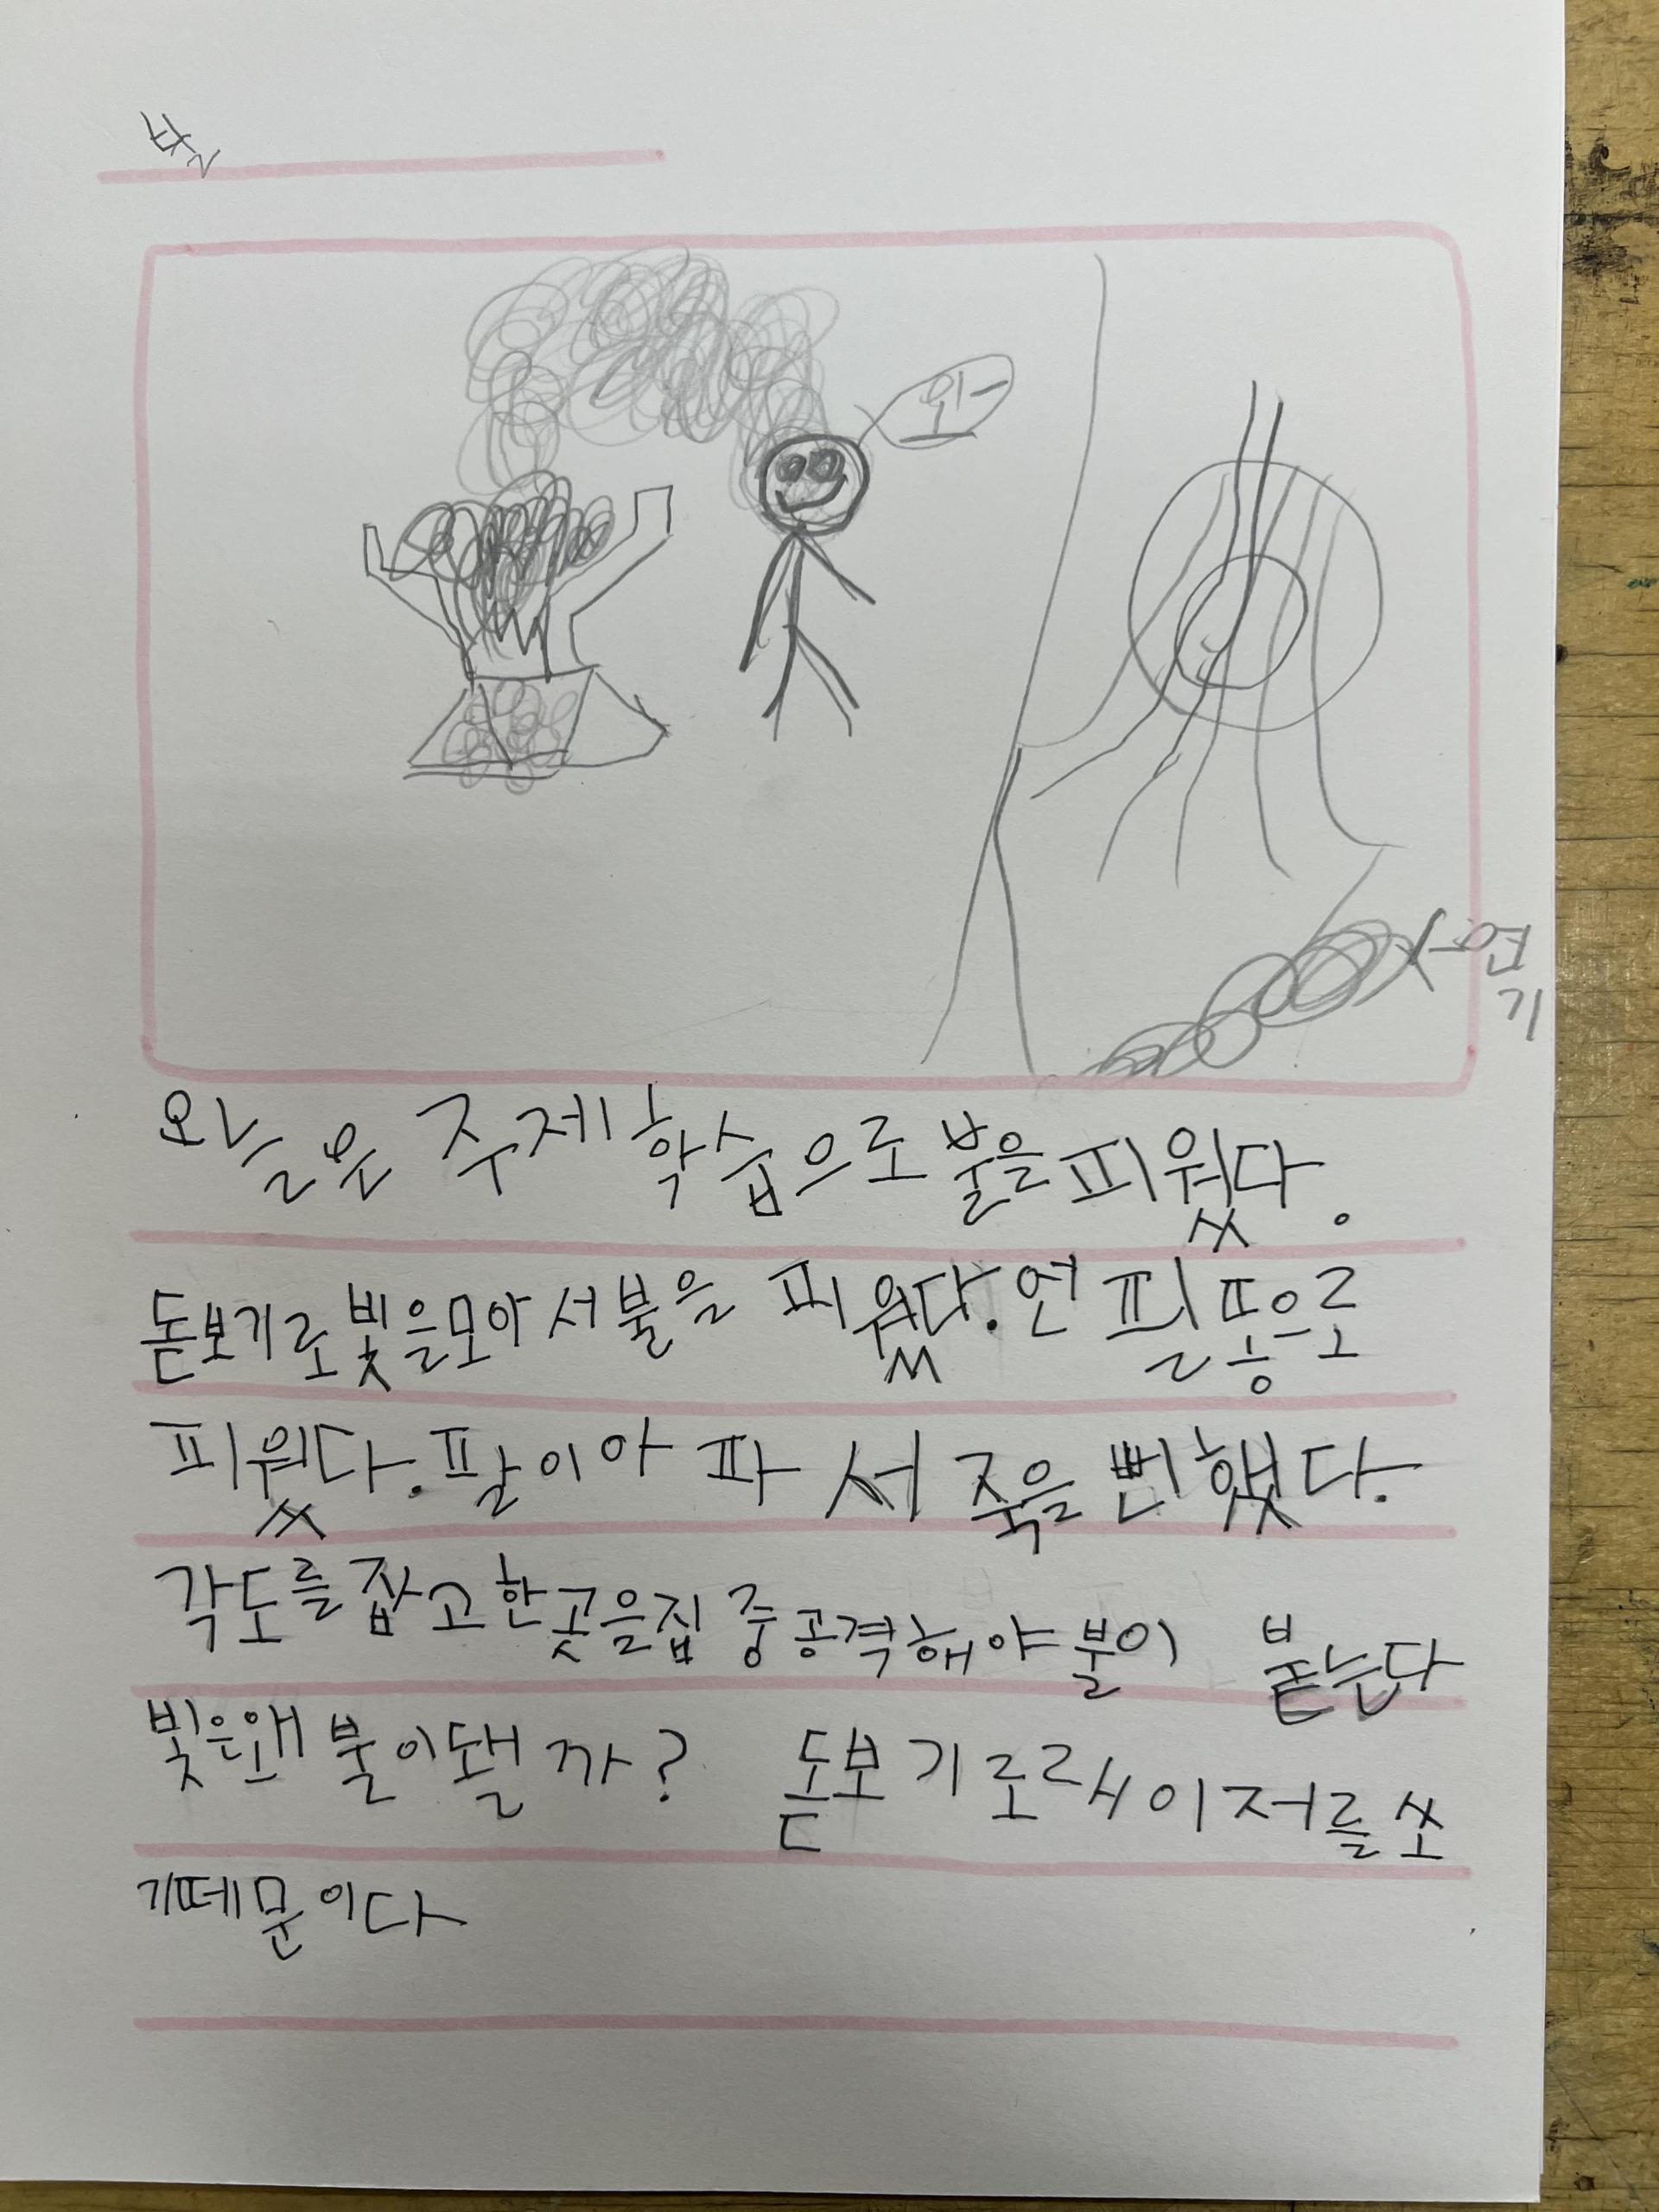 불
와-
연
기
오늘은 주제학습으로 불을 피웠다.
돋보기로 빛을모아서 불을 피웠다. 언 필똥으로
피웠다. 팔이 아파서 죽을 뻔했다.
각도를 잡고 한곳을 집중공격해야 불이 붙는다
빛은왜 불이됄까? 돋보기로 래이저를 쏘
기떼문이다